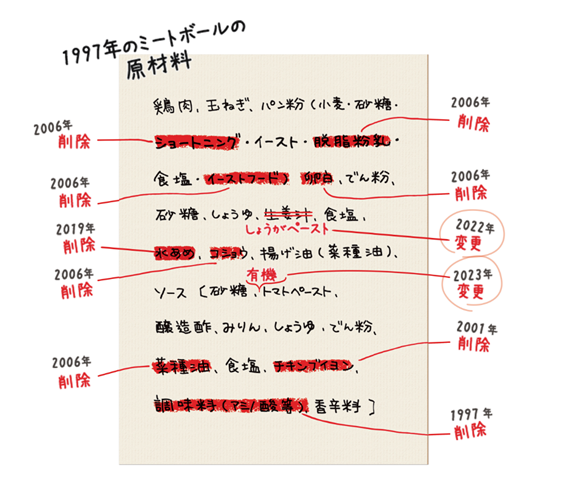 1997年のミートボールの
原材料
鶏肉、玉ねぎ、パン粉(小麦・砂糖・
2006年
削除
2006年
削除
ショートニング・イースト・脱脂粉乳・
2006年
削除
食塩・イーストフード)卵白、でん粉、
2006年
削除
砂糖、しょうゆ、生姜汁、食塩、
しょうがペースト
2022年
変更
2019年
削除
水あめ、コショウ、揚げ油(菜種油)、
2006年
削除
有機
2023年
変更
ソース〔砂糖、トマトペースト、
醸造酢、みりん、しょうゆ、でん粉、
2001年
削除
2006年
削除
菜種油、食塩、チキンブイヨン、
調味料(アミノ酸等)、香辛料〕
1997年
削除